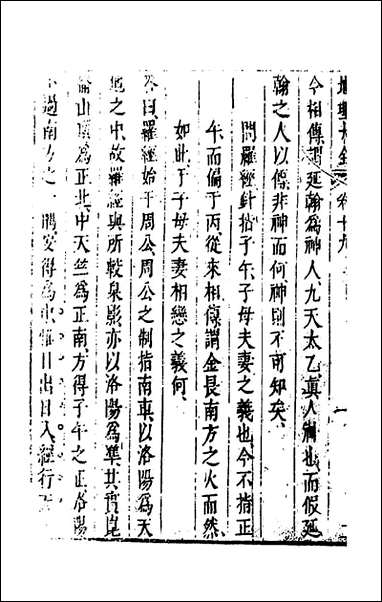 地理大全 卷十九
今相傳謂延翰為神人九天太乙真人嗣也而假延
翰之人以傳非神而何神則不可知矣
問羅經針指子午子母夫妻之義也今不指正
午而偏于丙從來相傳謂金畏南方之火而然
如此于子母夫妻相戀之義何
答曰羅經始于周公周公之制指南車以洛陽為天
地之中故羅經與所較泉影亦以洛陽為準其實崑
崙山頂為正北中天竺為正南方得子午之正洛陽
不過南方之一隅安得為中雖日出日入經行